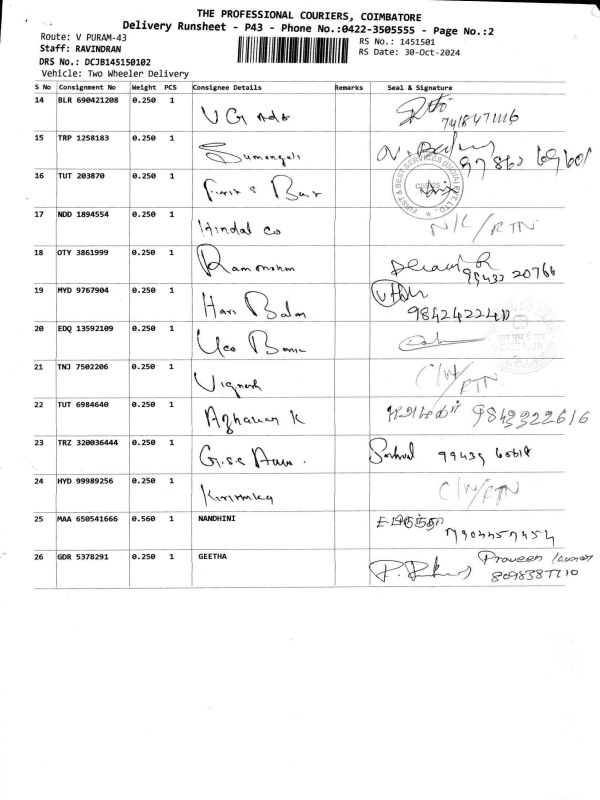 THE PROFESSIONAL COURIERS, COIMBATORE
Delivery Runsheet - P43 - Phone No.:0422-3505555 - Page No.:2
Route: V PURAM-43
RS No.: 1451501
Staff: RAVINDRAN
RS Date: 30-Oct-2024
DRS No.: DCJB145150102
Vehicle: Two Wheeler Delivery
S No Consignment No Weight PCS Consignee Details Remarks Seal & Signature
14 BLR 690421208 0.250 1 V G Ads
15 TRP 1258183 0.250 1 Sumangali
16 TUT 203870 0.250 1
FIRST & BEST SERVICES (INDIA) PVT. LTD.
17 NDD 1894554 0.250 1 Hindal co N/C/RTN
18 OTY 3861999 0.250 1 99432 20766
19 MYD 9767904 0.250 1 Hari
9842422240
20 EDQ 13592109 0.250 1 Uco Bank
21 TNJ 7502206 0.250 1 Vignesh C/W/RTN
22 TUT 6984640 0.250 1 K 9843322616
23 TRZ 320036444 0.250 1 99439
24 HYD 99989256 0.250 1 C/W/RTN
25 MAA 650541666 0.560 1 NANDHINI
26 GDR 5378291 0.250 1 GEETHA Praveen